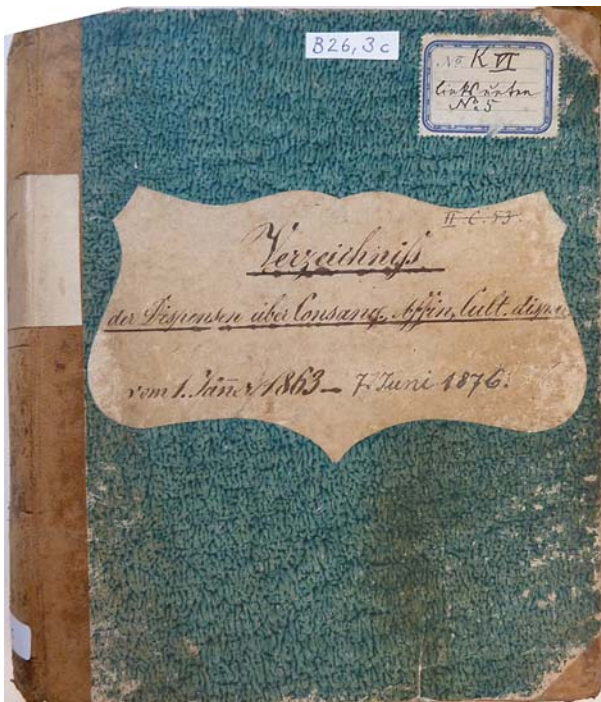 B26,3c
No K VI
links unten
No 5
II. C. 53.
Verzeichniß
der Dispensen über Consang. Affin. Cult. dispar
vom 1. Jänner 1863 – 7. Juni 1876.